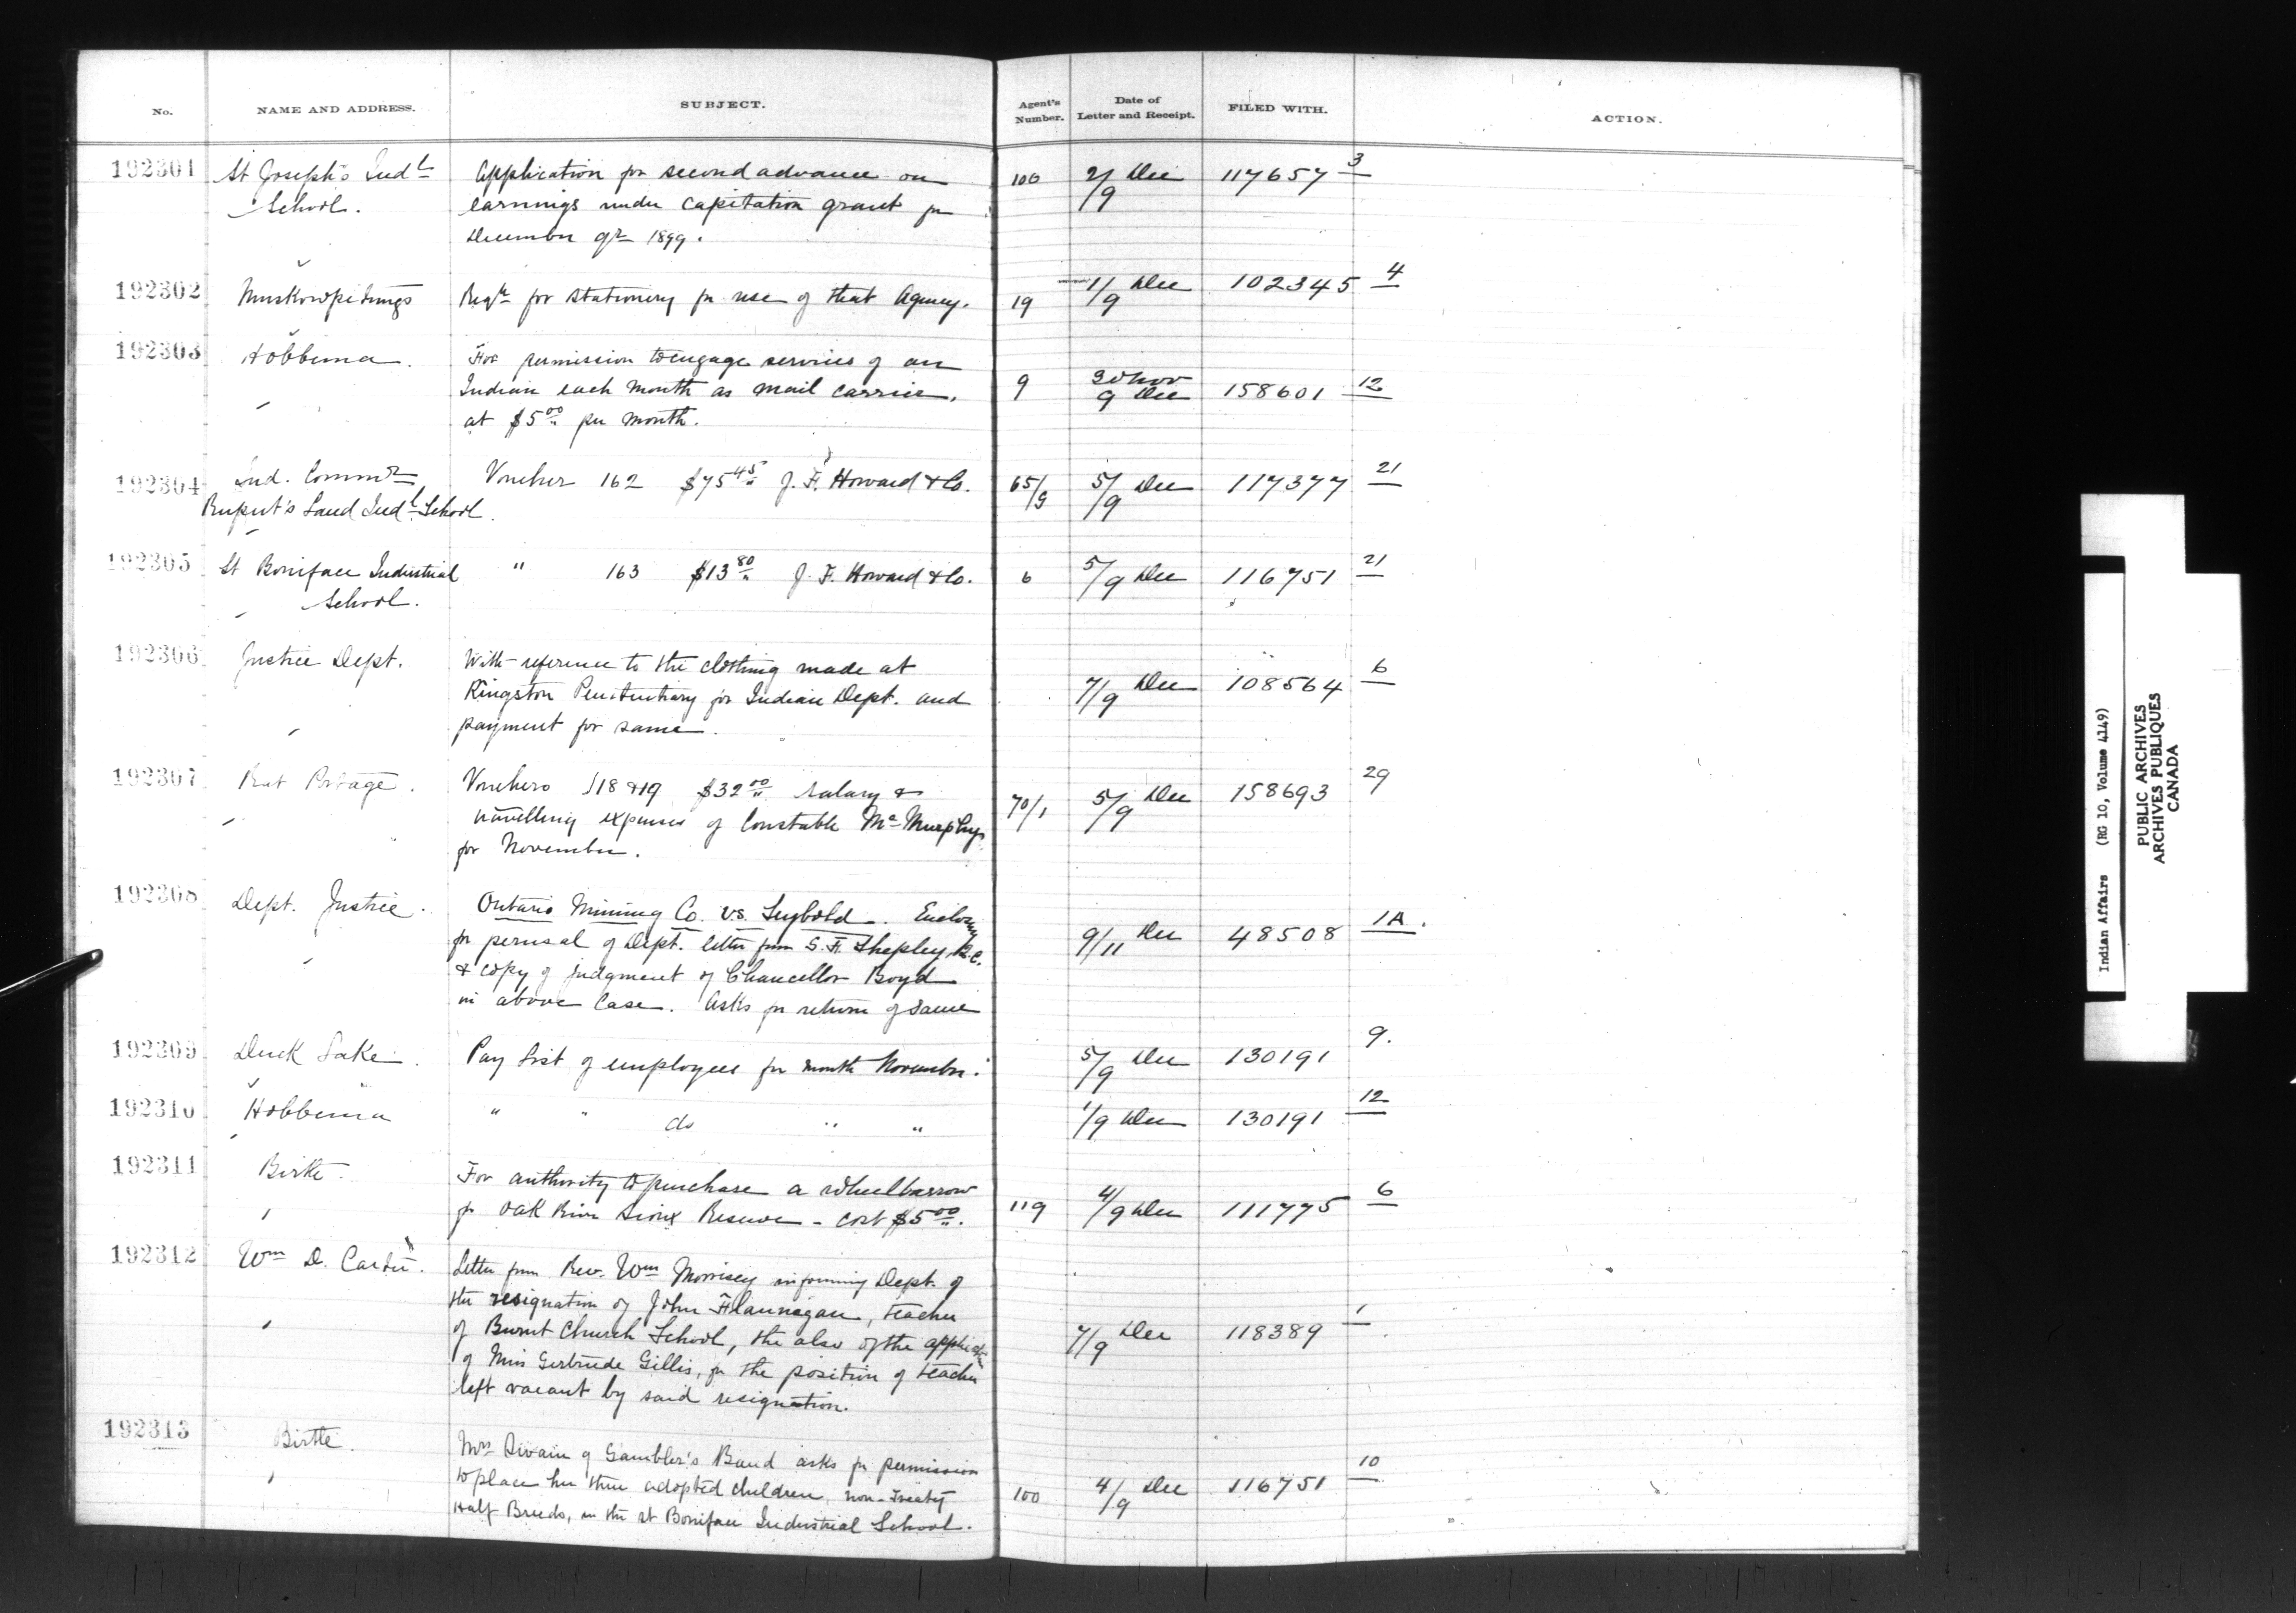 No. NAME AND ADDRESS. SUBJECT. Agent's Number. Date of Letter and Receipt. FILED WITH. ACTION.
192301 St Joseph's Indl Application for second advance on 106 2/9 Dec 117657 3
School. earnings under capitation grant for
December qr 1899.
192302 Muskowpetungs Reqn for stationery for use of that Agency. 19 1/9 Dec 102345 4
192303 Hobbema. For permission to engage services of an
Indian each month as mail carrier, 9 30 Nov 9 Dec 158601 12
at $5.00 per month.
192304 Ind. Commr Voucher 162 $75.45 J. F. Howard & Co. 65/9 5/9 Dec 117377 21
Rupert's Land Indl School.
192305 St Boniface Industrial " 163 $13.80 J. F. Howard & Co. 6 5/9 Dec 116751 21
School.
192306 Justice Dept. With reference to the clothing made at
Kingston Penitentiary for Indian Dept. and 7/9 Dec 108564 6
payment for same.
192307 Rat Portage. Vouchers 118 & 19 $32.00 salary &
travelling expenses of Constable McMurphy 70/1 5/9 Dec 158693 29
for November.
192308 Dept. Justice. Ontario Mining Co. vs. Seybold. Encloses
for perusal of Dept. letter from S. F. Shepley, Q.C. 9/11 Dec 48508 1A.
& copy of judgment of Chancellor Boyd
in above case. Asks for return of same
192309 Duck Lake. Pay list of employees for month November. 5/9 Dec 130191 9.
192310 Hobbema " " do " " 1/9 Dec 130191 12
192311 Birtle. For authority to purchase a wheelbarrow
for Oak River Sioux Reserve - cost $5.00. 119 4/9 Dec 111775 6
192312 Wm D. Carter. Letter from Rev. Wm Morrisey informing Dept. of
the resignation of John Flannagan, teacher
of Burnt Church School, the also of the applicatn 7/9 Dec 118389 1
of Miss Gertrude Gillis, for the position of teacher
left vacant by said resignation.
192313 Birtle. Mrs Swain of Gambler's Band asks for permission
to place her three adopted children, non-Treaty 100 4/9 Dec 116751 10
Half Breeds, in the St Boniface Industrial School.
Indian Affairs (RG 10, Volume 4149)
PUBLIC ARCHIVES
ARCHIVES PUBLIQUES
CANADA